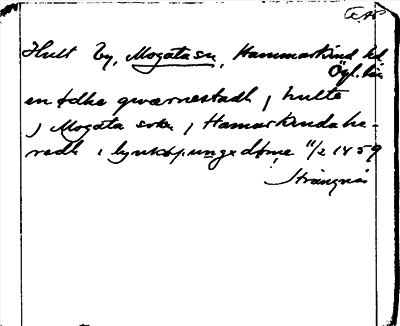 Hult by, Mogata sn, Hammarkind hd
Ögl. län
en ödhe qwærnestadh j hulte
j Mogata sokn j Hamarkindahe-
radh i lynköpungxdøme 11/2 1459
Strängnäs